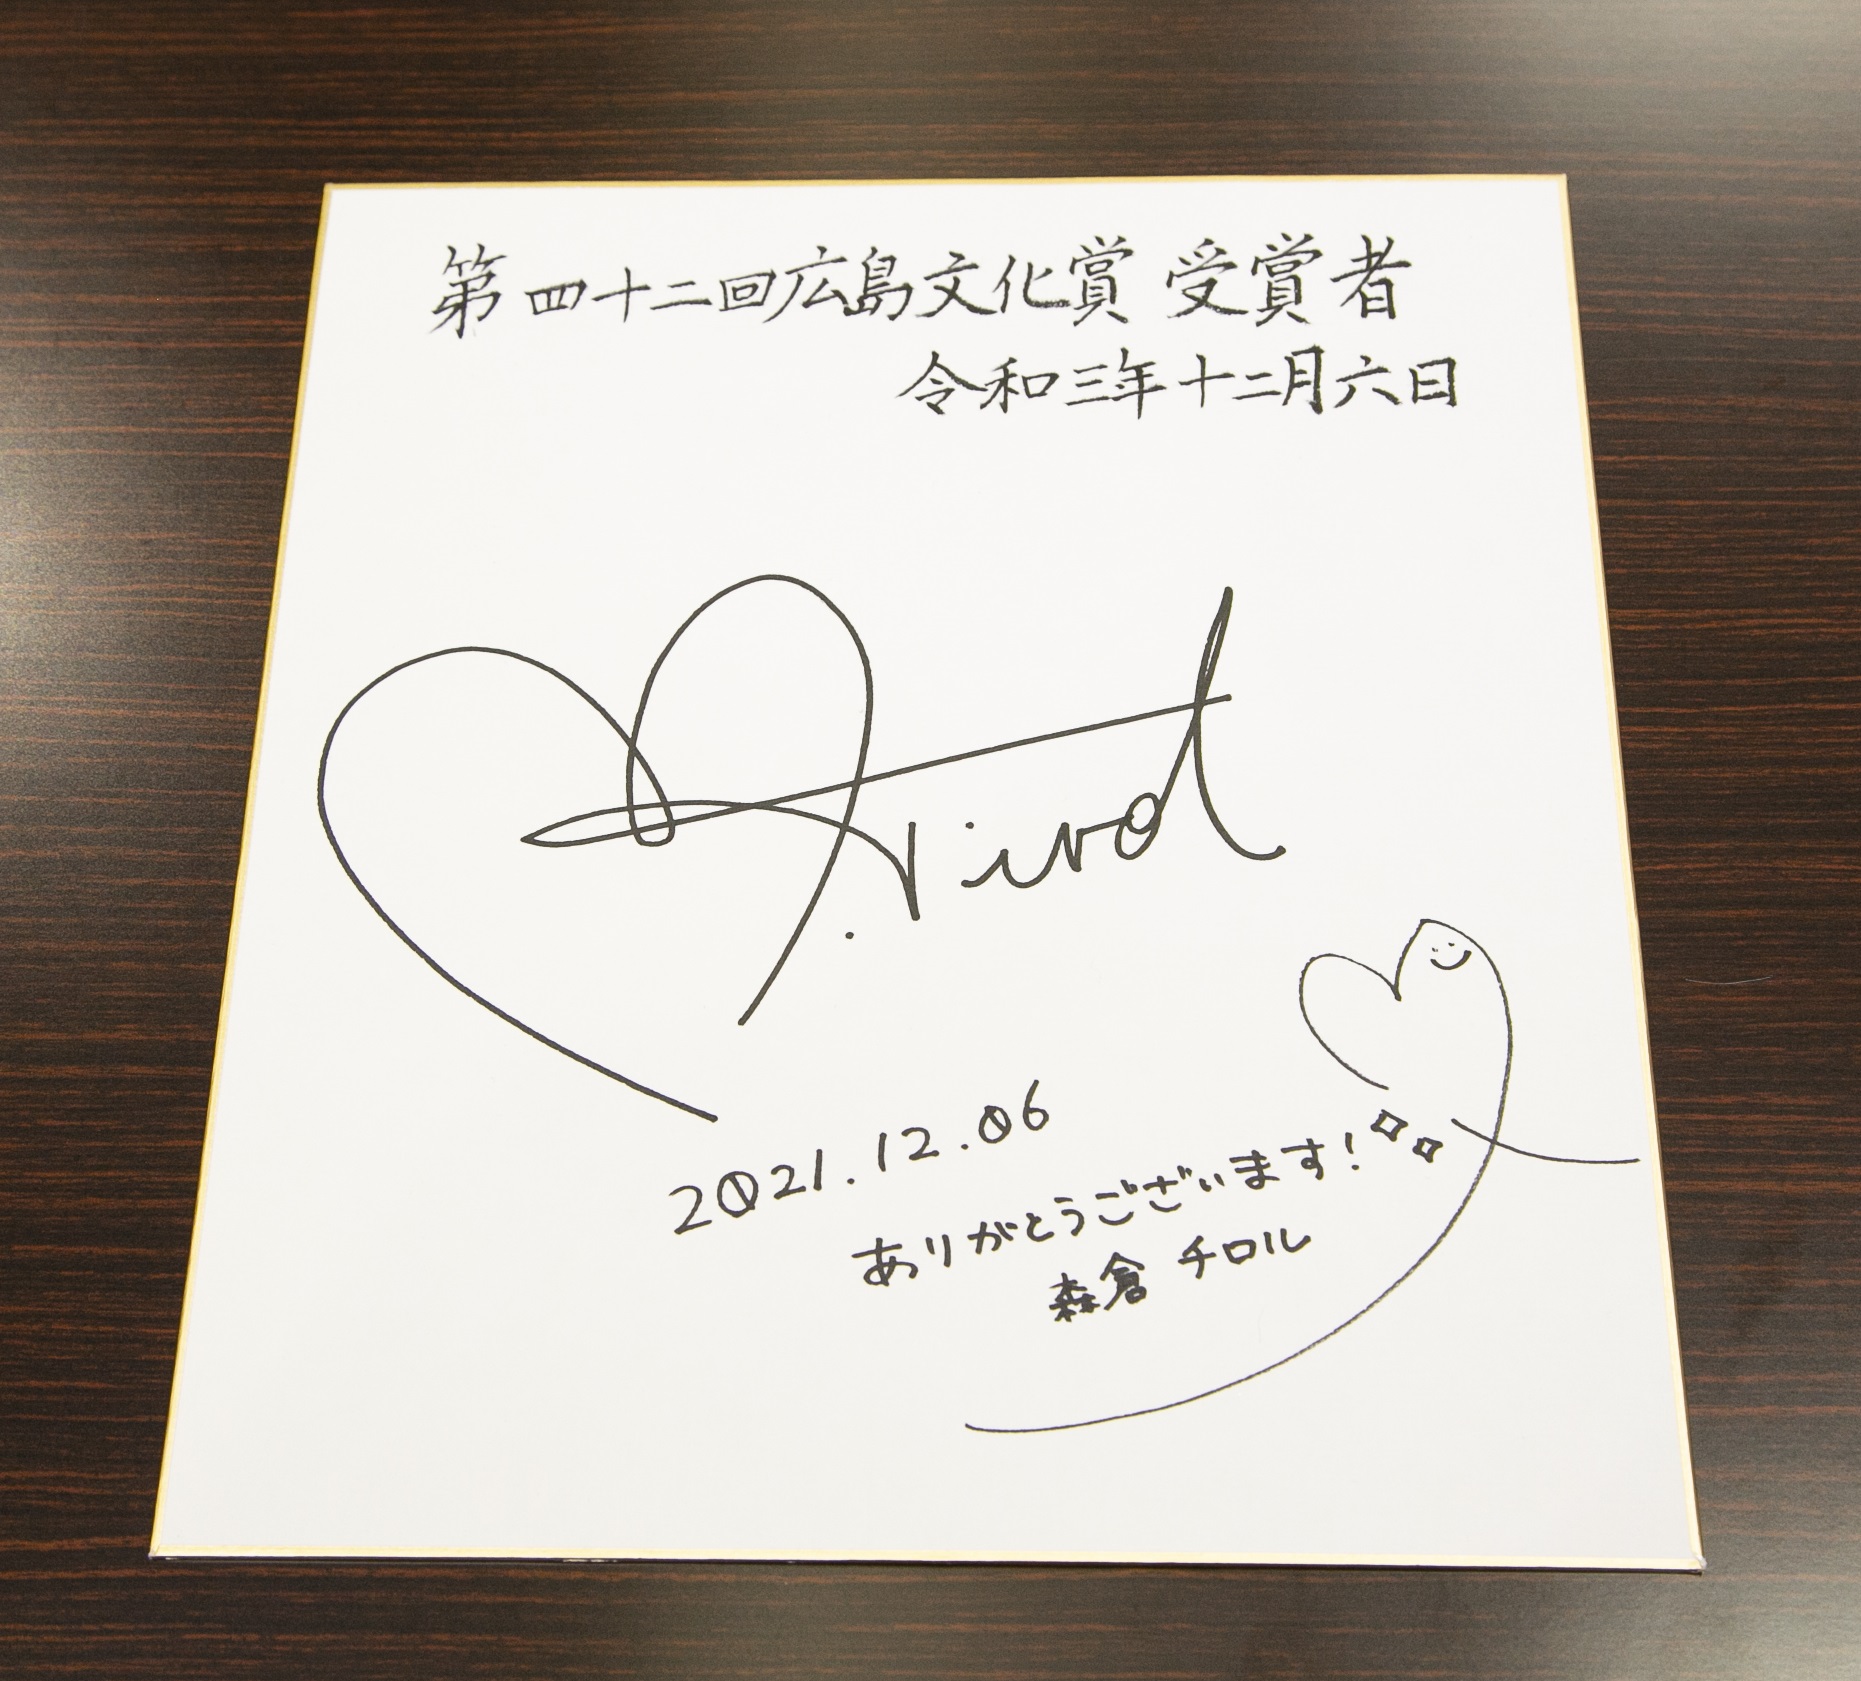 第四十二回広島文化賞 受賞者
令和三年十二月六日
2021.12.06
ありがとうございます!
森倉 チロル